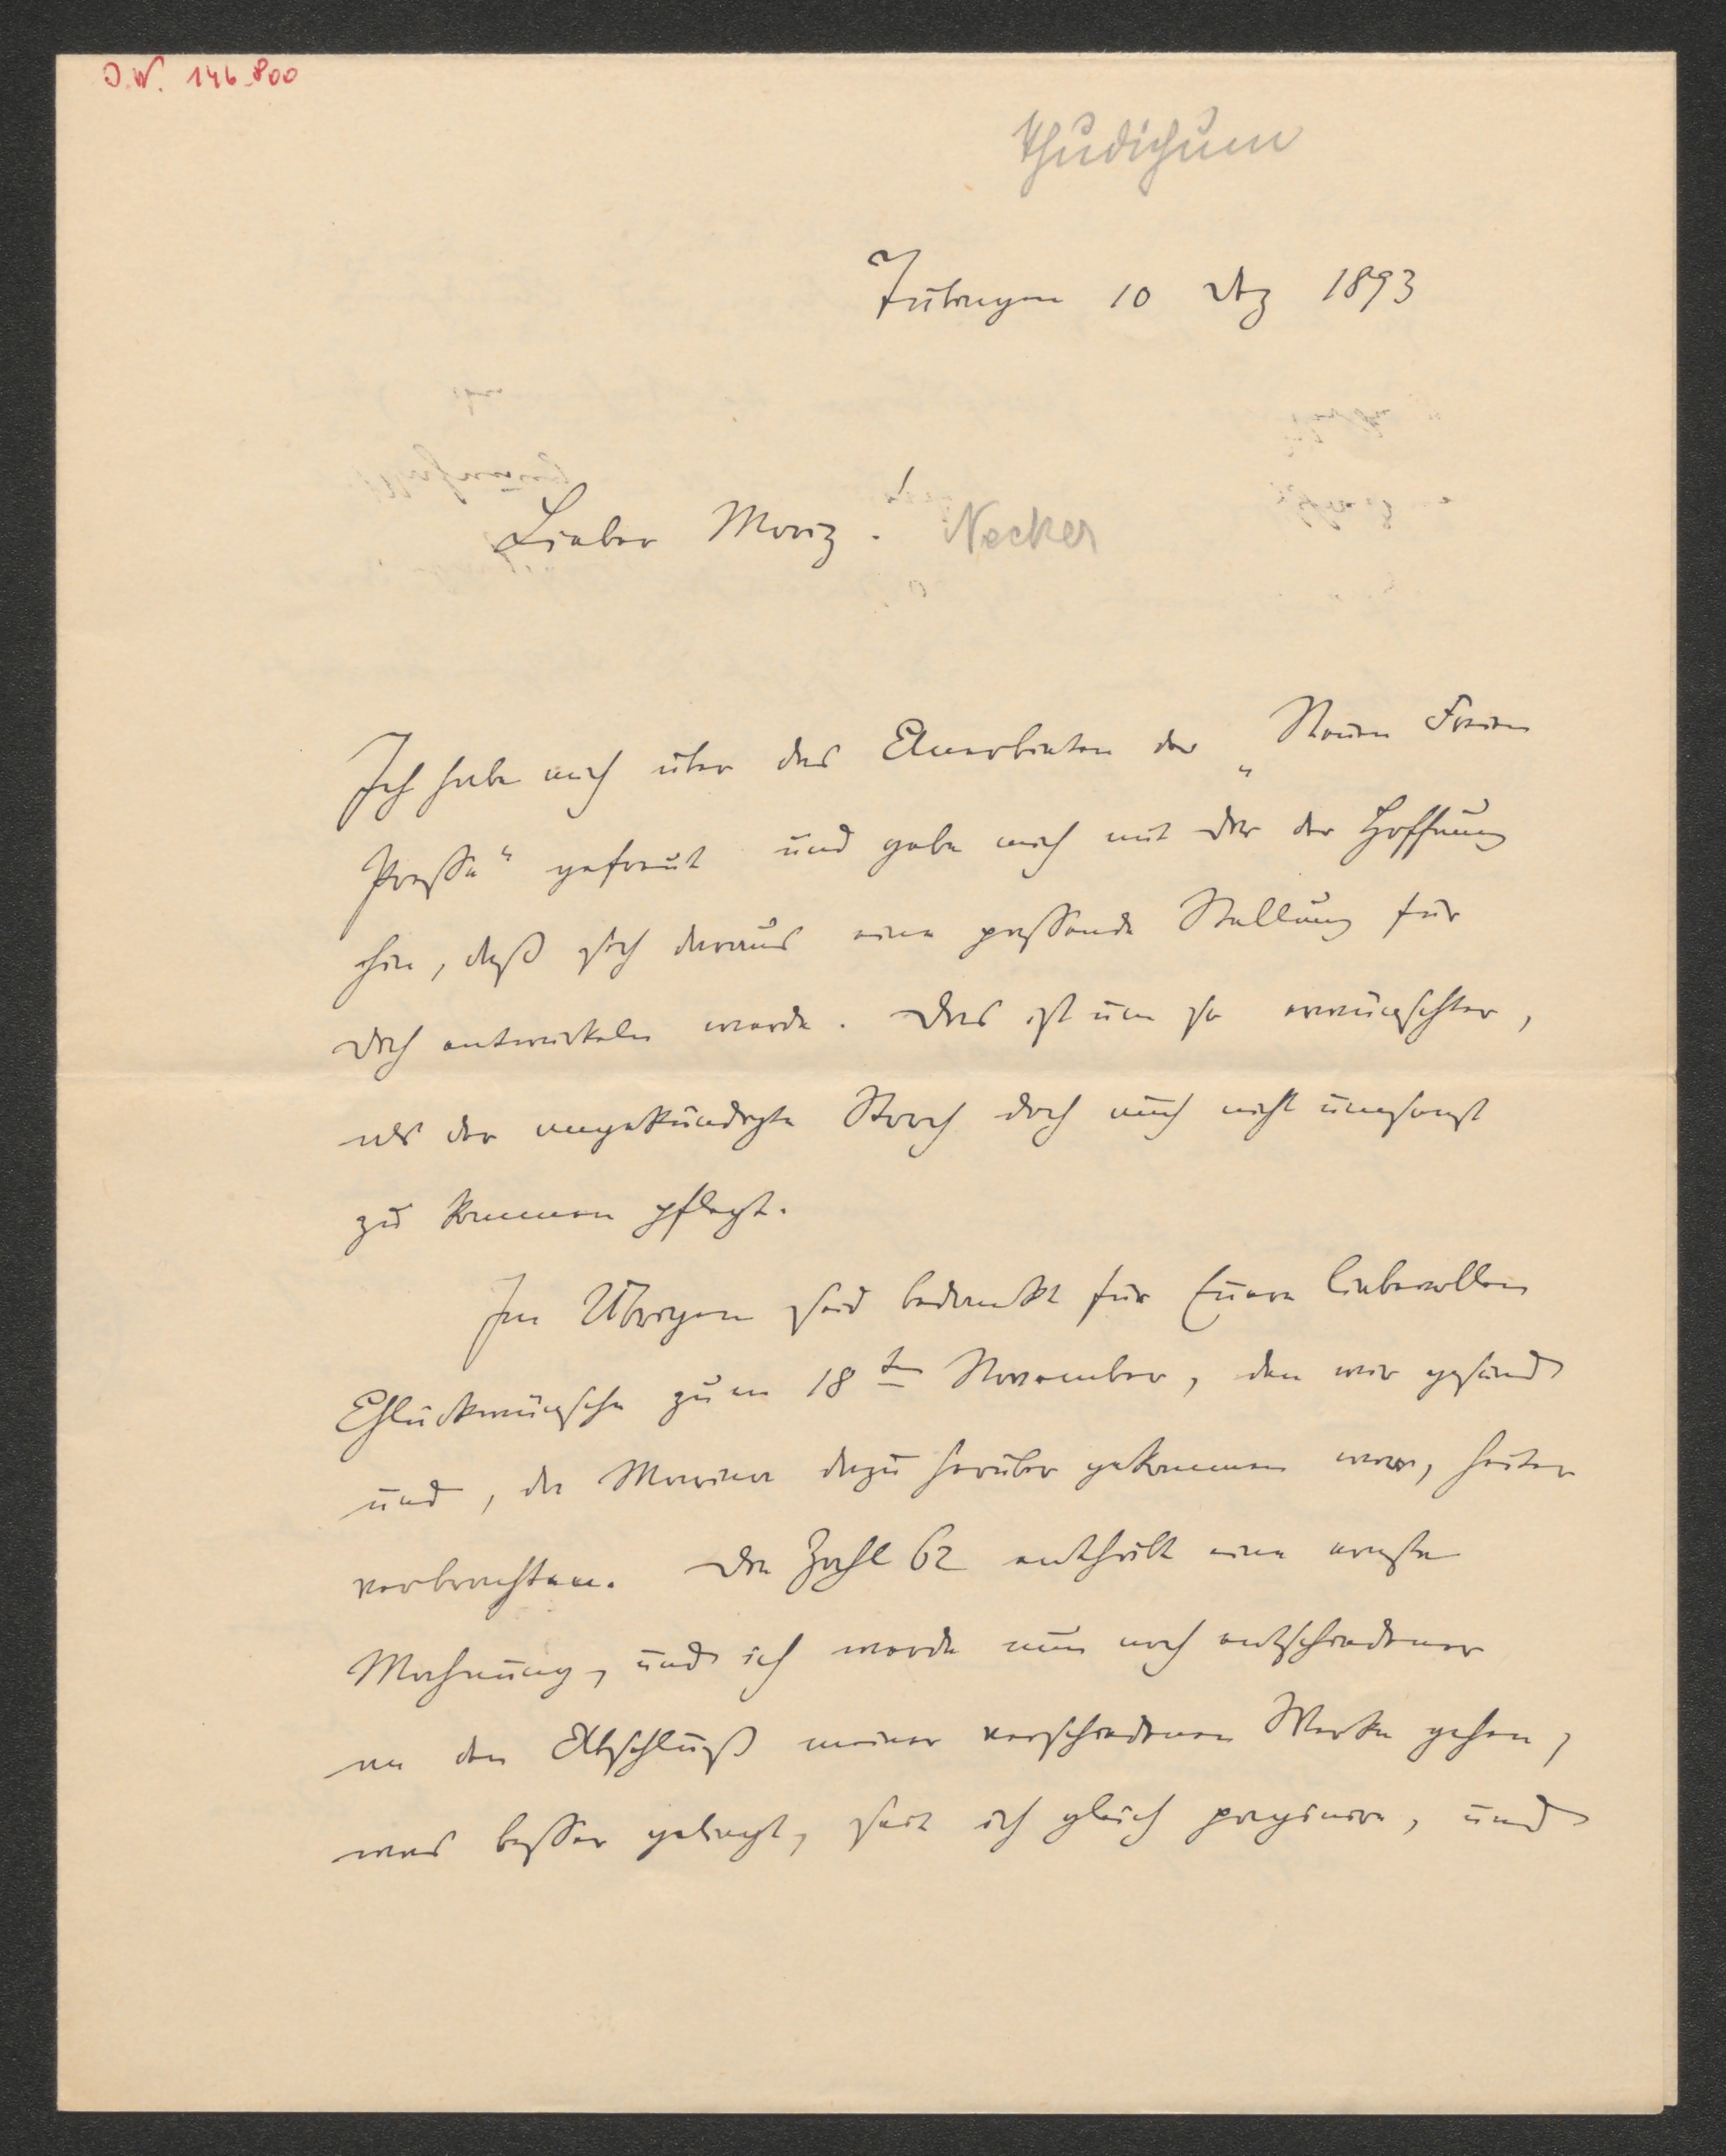 J.N. 146.800
Thudichum
Tübingen 10 Dez 1893
Lieber Moriz! Necker
Ich habe mich über das Anerbieten der „Neuen Freien
Presse“ gefreut und gebe mich mit Dir der Hoffnung
hin, daß sich daraus eine passende Stellung für
Dich entwickeln werde. Das ist um so erwünschter,
als der angekündigte Storch doch auch nicht umsonst
zu kommen pflegt.
Im Übrigen seid bedankt für Euere liebevollen
Glückwünsche zum 18ten November, den wir gesund
und, da dazu herüber gekommen war, heiter
verbrachten. Die Zahl 62 enthält eine ernste
Mahnung, und ich werde nun noch entschiedener
an den Abschluß meiner verschiedenen Werke gehen,
was besser gelingt, seit ich gleich paginire, und